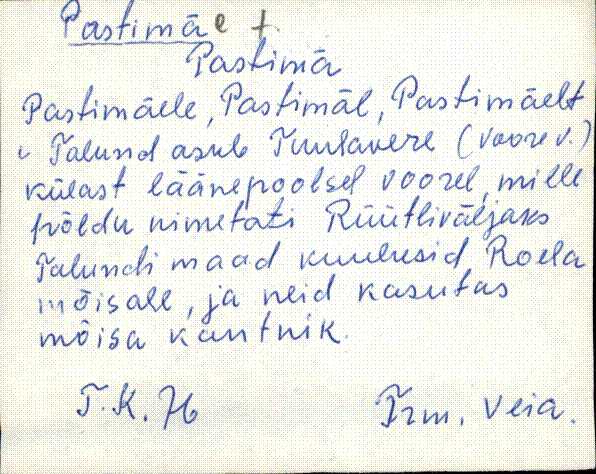 Pastimäe t.
Pastimä
Pastimäele, Pastimäl, Pastimäelt
Talund asub Tuulavere (Voore v.)
külast läänepoolsel voorel, mille
põldu nimetati Rüütliväljaks
Talundi maad kuulusid Roela
mõisale, ja neid kasutas
mõisa kantnik.
T.K. H Trm. Veia.